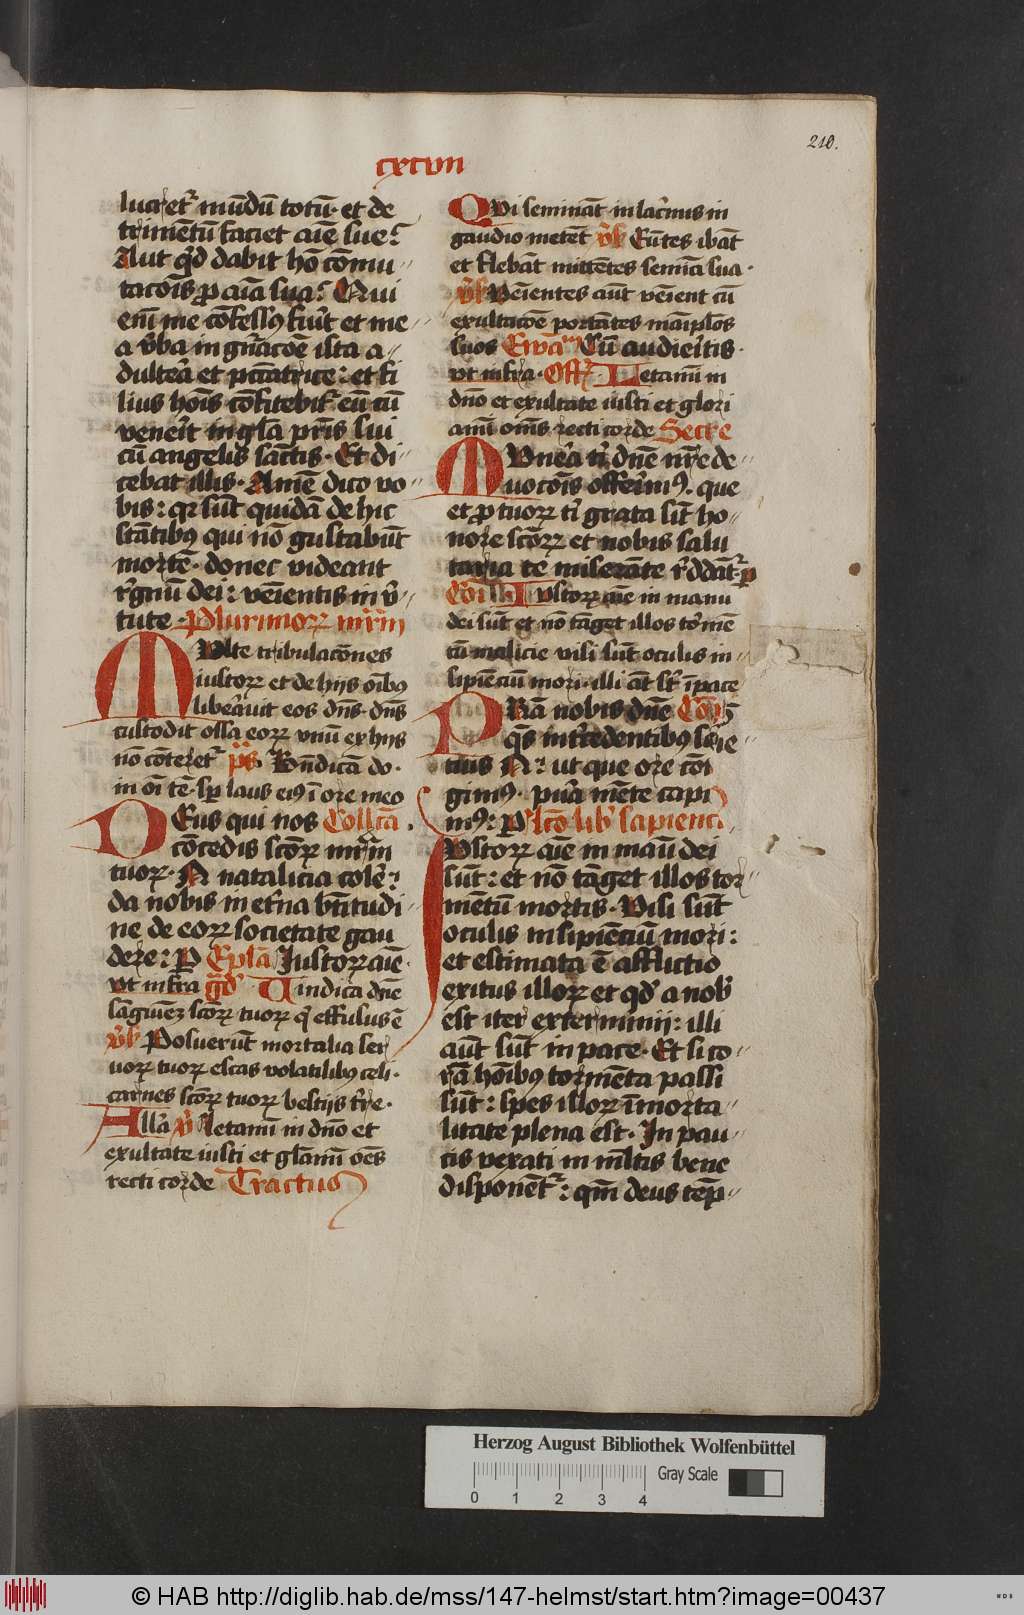 210.
cxcvii
lucret᷑ mūdū totū· et de
trimētū faciet aīe sue?
Aut qͥd dabit hō cōmu
tacōis ꝓ aīa sua? Qui
eni᷑ me cōfessꝰ fuīt et me
a v᷑ba in gn̄acōe ista a
dult᷑a et pc̄catrice: et fi
lius hoīs cōfitebit᷑ eū cū
vene᷑it in gl̄a pr̄is sui
cū angelis sāctis· Et di
cebat illis· Amē dico vo
bis: qꝛ sūt quidā de hic
stātibꝰ qui nō gustabūt
mortē· donec videant
r᷑gnū dei: veīentis in v᷑
tute· Plurimoꝝ mr̄im
Multe tribulacōnes
iustoꝝ et de hijs oībꝰ
libe᷑auit eos dn̄s· dn̄s
custodit ossa eoꝝ vnū ex hijs
nō cōteret᷑ p̄s· Bn̄dicā do
in oī tē· sꝑ laus eiꝰ ī ore meo
Deus qui nos Collc̄a
cōcedis sc̄oꝝ mr̄im
tuoꝝ· N natalicia cole᷑:
da nobis in et᷑na bt̄itudi
ne de eoꝝ societate gau
dere: P Epl̄a Justoꝝ aīe
vt infra gᷓd̄ Uindica dn̄e
sāgui᷑eꝫ sc̄oꝝ tuoꝝ qͥ effusus ē
v᷑s Posuerūt mortalia ser
uoꝝ tuoꝝ escas volatilibꝰ celi·
carnes sc̄oꝝ tuoꝝ bestijs t᷑re·
All̄a v᷑ Letami᷑ in dn̄o et
exultate iusti et gl̄ami᷑ oēs
recti corde Tractus
Qvi semināt in lac᷑mis in
gaudio metēt v᷑s Eūtes ibāt
et flebāt mittētes semīa sua·
v᷑s Veīentes aūt veīent cū
exultacōe portātes maīplos
suos Ewā Cū audie᷑itis·
vt infra· Off᷑ Letami᷑ in
dn̄o et exultate iusti et glori
ami᷑ om̄s recti corde Secre
Mvne᷑a t᷑ dn̄e nr̄e de
uocōis offe᷑imꝰ· que
et ꝓ tuoꝝ t᷑ grata sīt ho
nore sc̄oꝝ et nobis salu
taria te miserāte r᷑ddāt᷑· ꝑ
Cōi Iustoꝝ aīe in manu
dei sūt et nō tāget illos to᷑mē
tū malicie visi sūt oculis in
sipiēciū mori· illi āt sūt ī pace
Pr̄a nobis dn̄e Cōꝑ
qs̄ int᷑cedentibꝰ sc̄is
tuis N: ut que ore cōti
gimꝰ· pu᷑a mēte capi
mꝰ: P Lc̄o lib᷑ sapienci
Justoꝝ aīe in manū dei
sūt: et nō tāget illos tor
mētū mortis· Visi sūt
oculis insipiēciū mori:
et estimata ē afflictio
exitus illoꝝ et qd̄ a nob᷑
est iter exterminij: illi
aūt sūt in pace· Et si co
rā hoībꝰ tormēta passi
sūt: spes illoꝝ īmorta
litate plena est· In pau
cis vexati in ml̄tis bene
disponēt᷑: qm̄ deus tēp
Herzog August Bibliothek Wolfenbüttel
Gray Scale
0 1 2 3 4
© HAB http://diglib.hab.de/mss/147-helmst/start.htm?image=00437